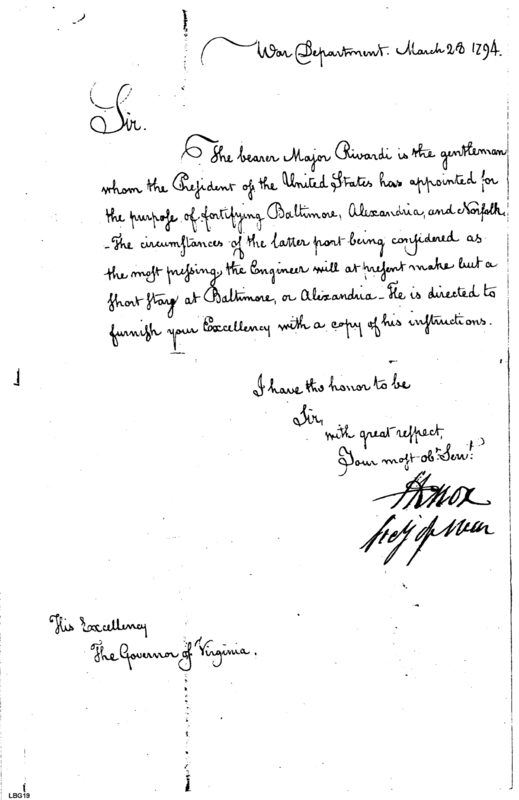 War Department. March 28 1794.
Sir.
The bearer Major Rivardi is the gentleman
whom the President of the United States has appointed for
the purpose of fortifying Baltimore, Alexandria, and Norfolk.
- The circumstances of the latter port being considered as
the most pressing, the Engineer will at present make but a
short stay at Baltimore, or Alexandria - He is directed to
furnish your Excellency with a copy of his instructions.
I have the honor to be
Sir,
with great respect,
Your most obt. Servt.
HKnox
Secy of War
His Excellency
The Governor of Virginia.
LBG19